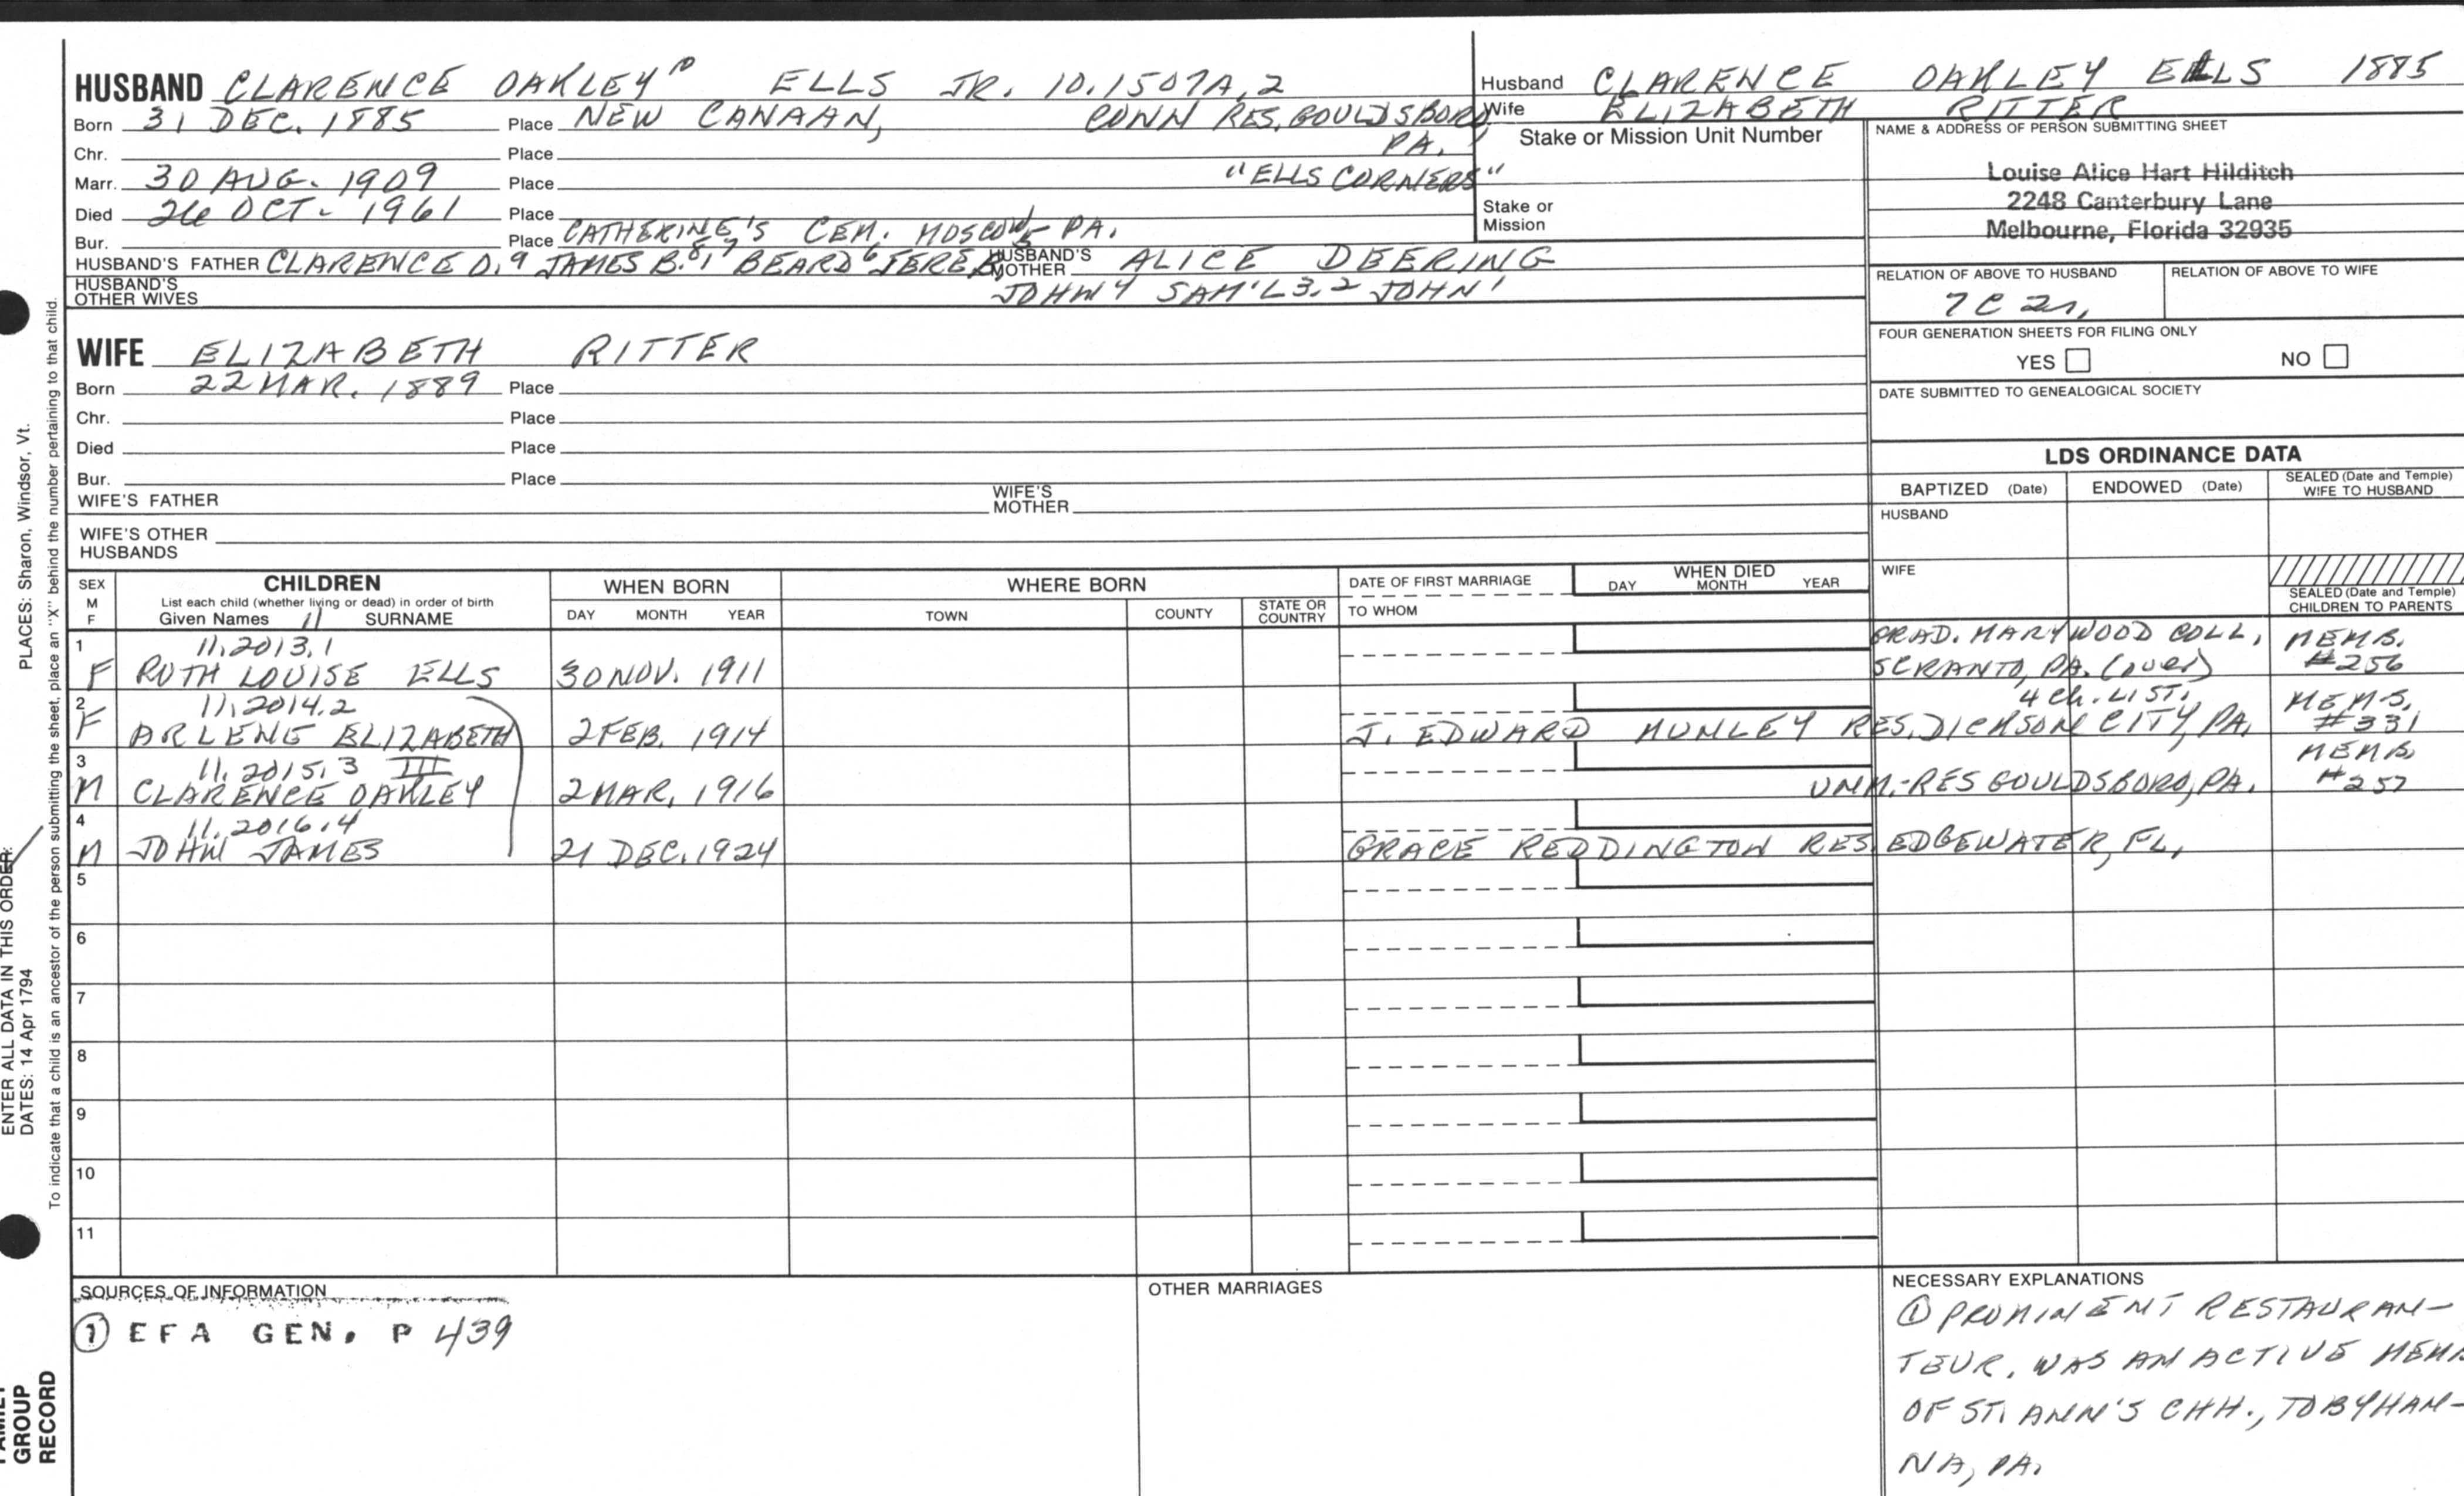 HUSBAND CLARENCE OAKLEY ELLS JR. 10.1507A.2
Born 31 DEC. 1885 Place NEW CANAAN, CONN RES. GOULDSBORO
Chr. Place PA.
Marr. 30 AUG. 1909 Place "ELLS CORNERS"
Died 26 OCT. 1961 Place
Bur. Place CATHERINE'S CEM. MOSCOW PA.
HUSBAND'S FATHER CLARENCE O.9 JAMES B.8, BEARD6 JERE HUSBAND'S MOTHER ALICE DEERING
HUSBAND'S OTHER WIVES JOHN4 SAM'L3,2 JOHN1
Husband CLARENCE OAKLEY ELLS 1885
Wife ELIZABETH RITTER
Stake or Mission Unit Number
Stake or
Mission
NAME & ADDRESS OF PERSON SUBMITTING SHEET
Louise Alice Hart Hilditch
2248 Canterbury Lane
Melbourne, Florida 32935
RELATION OF ABOVE TO HUSBAND RELATION OF ABOVE TO WIFE
7C 2r,
FOUR GENERATION SHEETS FOR FILING ONLY
YES NO
DATE SUBMITTED TO GENEALOGICAL SOCIETY
WIFE ELIZABETH RITTER
Born 22 MAR. 1889 Place
Chr. Place
Died Place
Bur. Place
WIFE'S FATHER WIFE'S MOTHER
WIFE'S OTHER
HUSBANDS
LDS ORDINANCE DATA
BAPTIZED (Date) ENDOWED (Date) SEALED (Date and Temple) WIFE TO HUSBAND
HUSBAND
WIFE
SEALED (Date and Temple)
CHILDREN TO PARENTS
SEX M F
CHILDREN
List each child (whether living or dead) in order of birth
Given Names 11 SURNAME
WHEN BORN
DAY MONTH YEAR
WHERE BORN
TOWN COUNTY STATE OR COUNTRY
DATE OF FIRST MARRIAGE
TO WHOM
WHEN DIED
DAY MONTH YEAR
1 11.2013.1 GRAD. MARYWOOD COLL, MEMB.
F RUTH LOUISE ELLS 30 NOV. 1911 SCRANTO, PA. (over) #256
2 11.2014.2 4 Ch. LIST. MEMB.
F ARLENE ELIZABETH 2 FEB. 1914 J. EDWARD MUNLEY RES. DICKSON CITY, PA. #331
3 11.2015.3 III MEMB
M CLARENCE OAKLEY 2 MAR. 1916 UNM.-RES GOULDSBORO, PA. #257
4 11.2016.4
M JOHN JAMES 21 DEC. 1924 GRACE REDDINGTON RES EDGEWATER, FL,
5
6
7
8
9
10
11
SOURCES OF INFORMATION
① EFA GEN. P 439
OTHER MARRIAGES
NECESSARY EXPLANATIONS
① PROMINENT RESTAURAN-
TEUR. WAS AN ACTIVE MEMB
OF ST. ANN'S CHH., TOBYHAN-
NA, PA.
PLACES: Sharon, Windsor, Vt.
ENTER ALL DATA IN THIS ORDER:
DATES: 14 Apr 1794
To indicate that a child is an ancestor of the person submitting the sheet, place an "X" behind the number pertaining to that child.
FAMILY
GROUP
RECORD